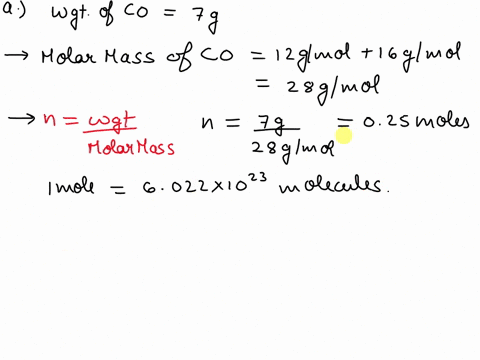 a.) Wgt. of CO = 7g
→ Molar Mass of CO = 12g/mol + 16g/mol
= 28g/mol
→ n = wgt / Molar Mass n = 7g / 28g/mol = 0.25 moles
1mole = 6.022×10²³ molecules.